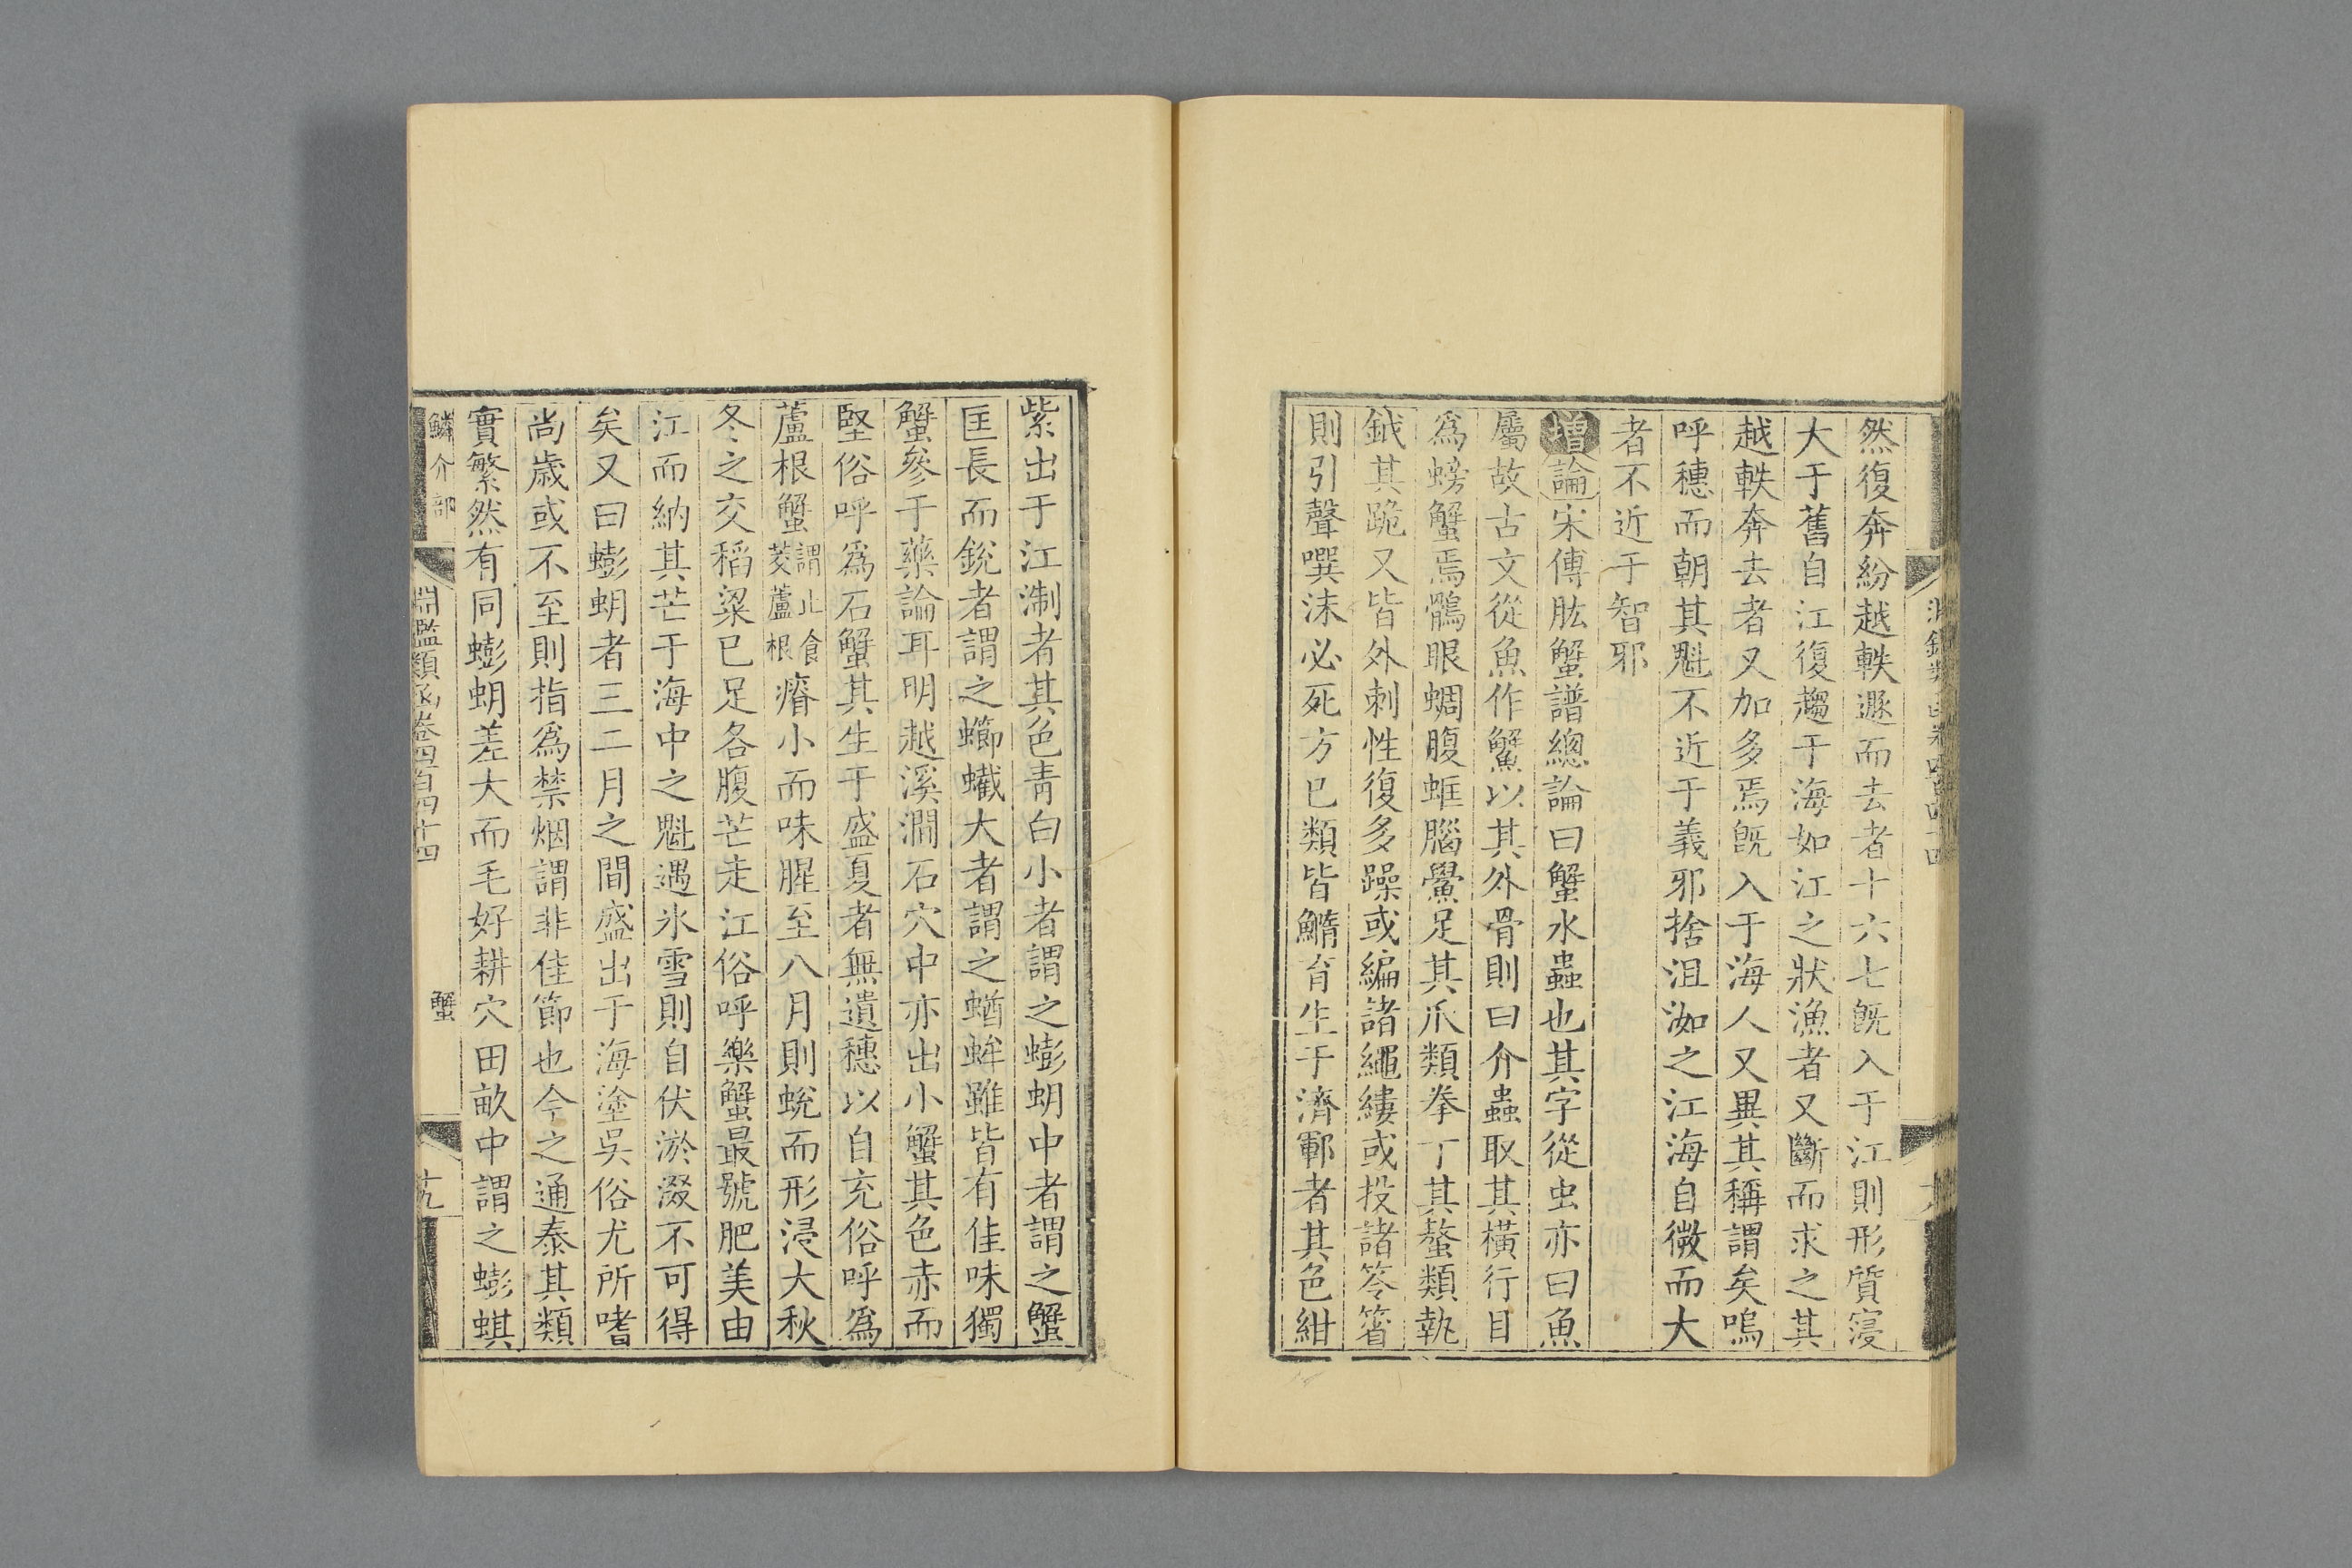 然復奔紛越軼遯而去者十六七旣入于江則形質寖
大于舊自江復趨于海如江之狀漁者又斷而求之其
越軼奔去者又加多焉旣入于海人又異其稱謂矣嗚
呼穗而朝其魁不近于義邪捨沮洳之江海自微而大
者不近于智邪
增論宋傅肱蟹譜總論曰蟹水蟲也其字從虫亦曰魚
屬故古文從魚作䲒以其外骨則曰介蟲取其橫行目
爲螃蟹焉鶻眼蜩腹蛭腦鱟足其爪類拳丁其螯類執
鉞其跪又皆外刺性復多躁或編諸繩縷或投諸笭箵
則引聲噀沫必死方已類皆鱐育生于濟鄆者其色紺
紫出于江淛者其色青白小者謂之蟛蚏中者謂之蟹
匡長而銳者謂之蠞大者謂之蝤蛑雖皆有佳味獨
蟹參于藥論耳明越溪澗石穴中亦出小蟹其色赤而
堅俗呼爲石蟹其生于盛夏者無遺穗以自充俗呼爲
蘆根蟹謂止食茭蘆根瘠小而味腥至八月則蛻而形浸大秋
冬之交稻粱已足各腹芒走江俗呼樂蟹最號肥美由
江而納其芒于海中之魁遇氷雪則自伏淤淴不可得
矣又曰蟛蚏者三二月之間盛出于海塗吳俗尤所嗜
尚歲或不至則指爲禁烟謂非佳節也今之通泰其類
實繁然有同蟛蚏差大而毛好耕穴田畝中謂之蟛蜞
鱗介部 淵鑑類函卷四百四十四 蟹